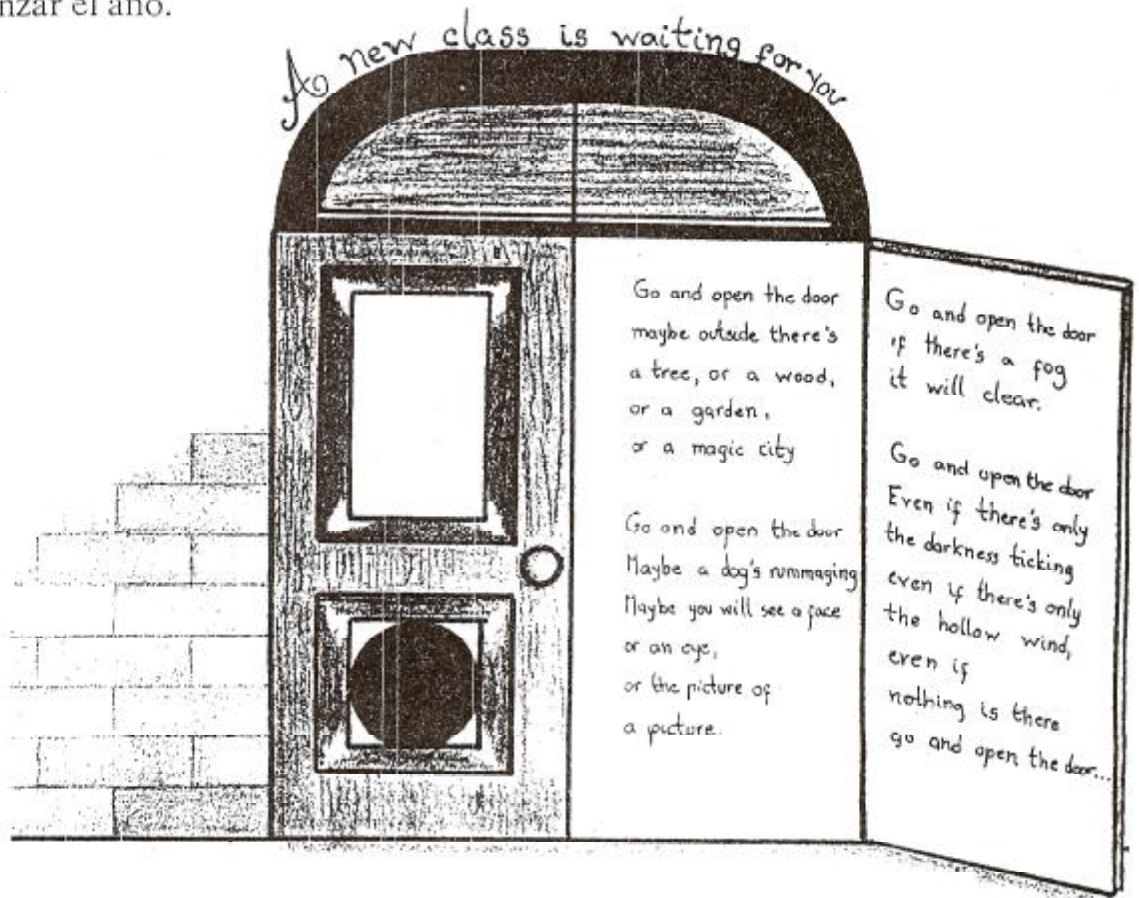 el año.
A new class is waiting for you
Go and open the door
maybe outside there's
a tree, or a wood,
or a garden,
or a magic city
Go and open the door
Maybe a dog's rummaging
Maybe you will see a face
or an eye,
or the picture of
a picture.
Go and open the door
if there's a fog
it will clear.
Go and open the door
Even if there's only
the darkness ticking
even if there's only
the hollow wind,
even if
nothing is there
go and open the door...